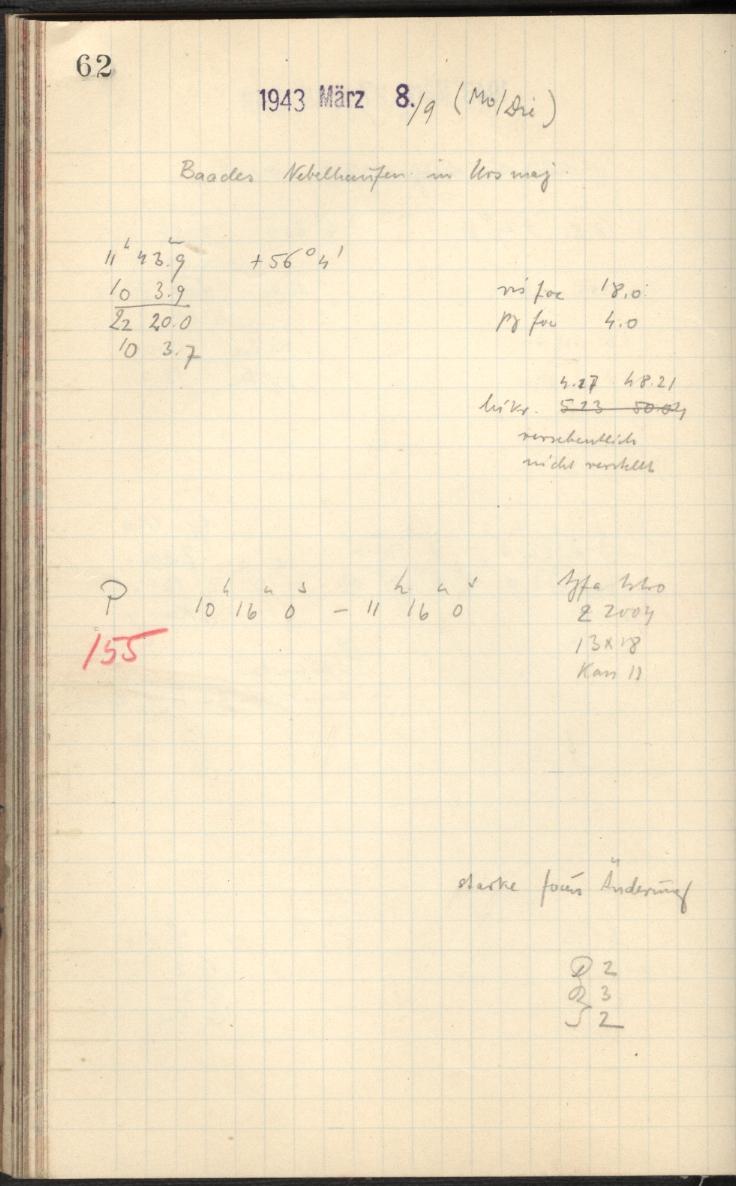 62
1943 März 8./9 (Mo/Die)
Baades Nebelhaufen in Urs maj.
11ʰ 43.ᵐ9 +56° 4'
10 3.9
22 20.0
10 3.7
vis foc 18.0
pg foc 4.0
4.27 48.21
523 50.04
versehentlich
nicht verstellt
P 10ʰ 16ᵐ 0ˢ – 11ʰ 16ᵐ 0ˢ
155
Z 2004
13x18
Kass 11
starke focus Änderung
D 2
R 3
S 2